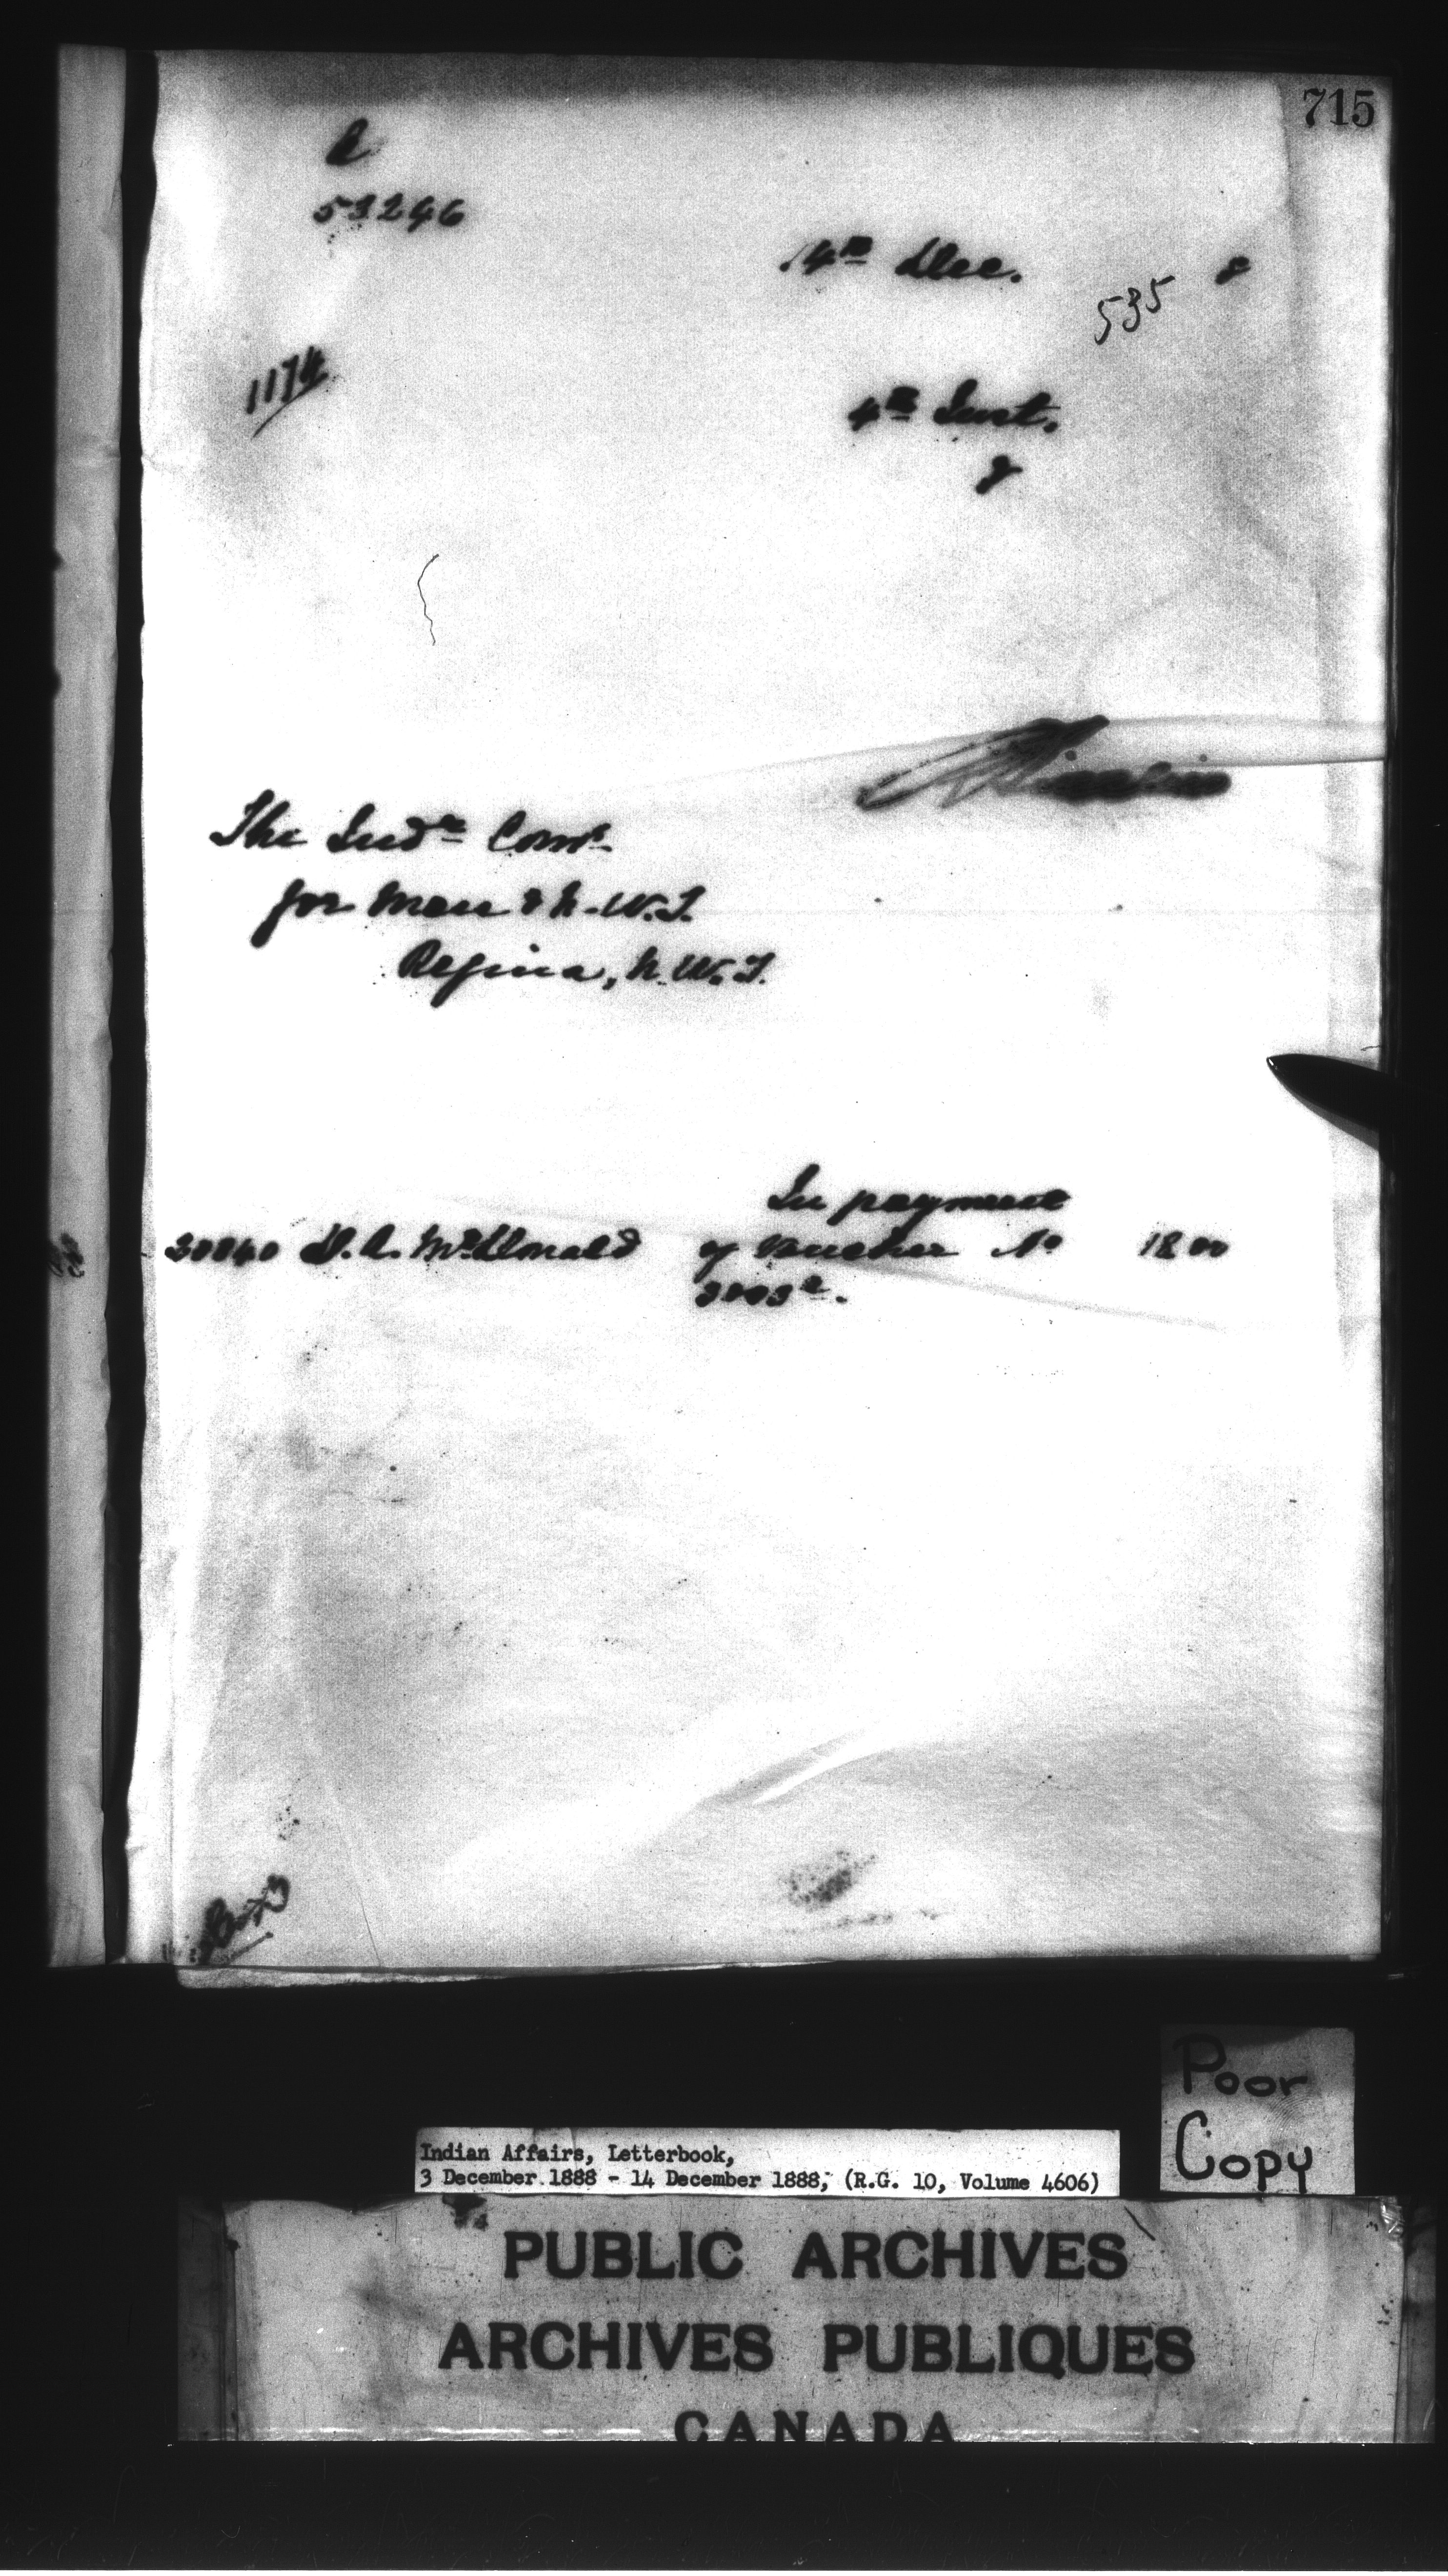 715
53246
14th Dec. 8
535
1174
4th Inst.
The Indn Comr
for Man & N.W.T.
Regina, N.W.T.
In payment
30840 D.A. McDonald of voucher No 18 00
3003
Poor
Copy
Indian Affairs, Letterbook,
3 December 1888 - 14 December 1888, (R.G. 10, Volume 4606)
PUBLIC ARCHIVES
ARCHIVES PUBLIQUES
CANADA